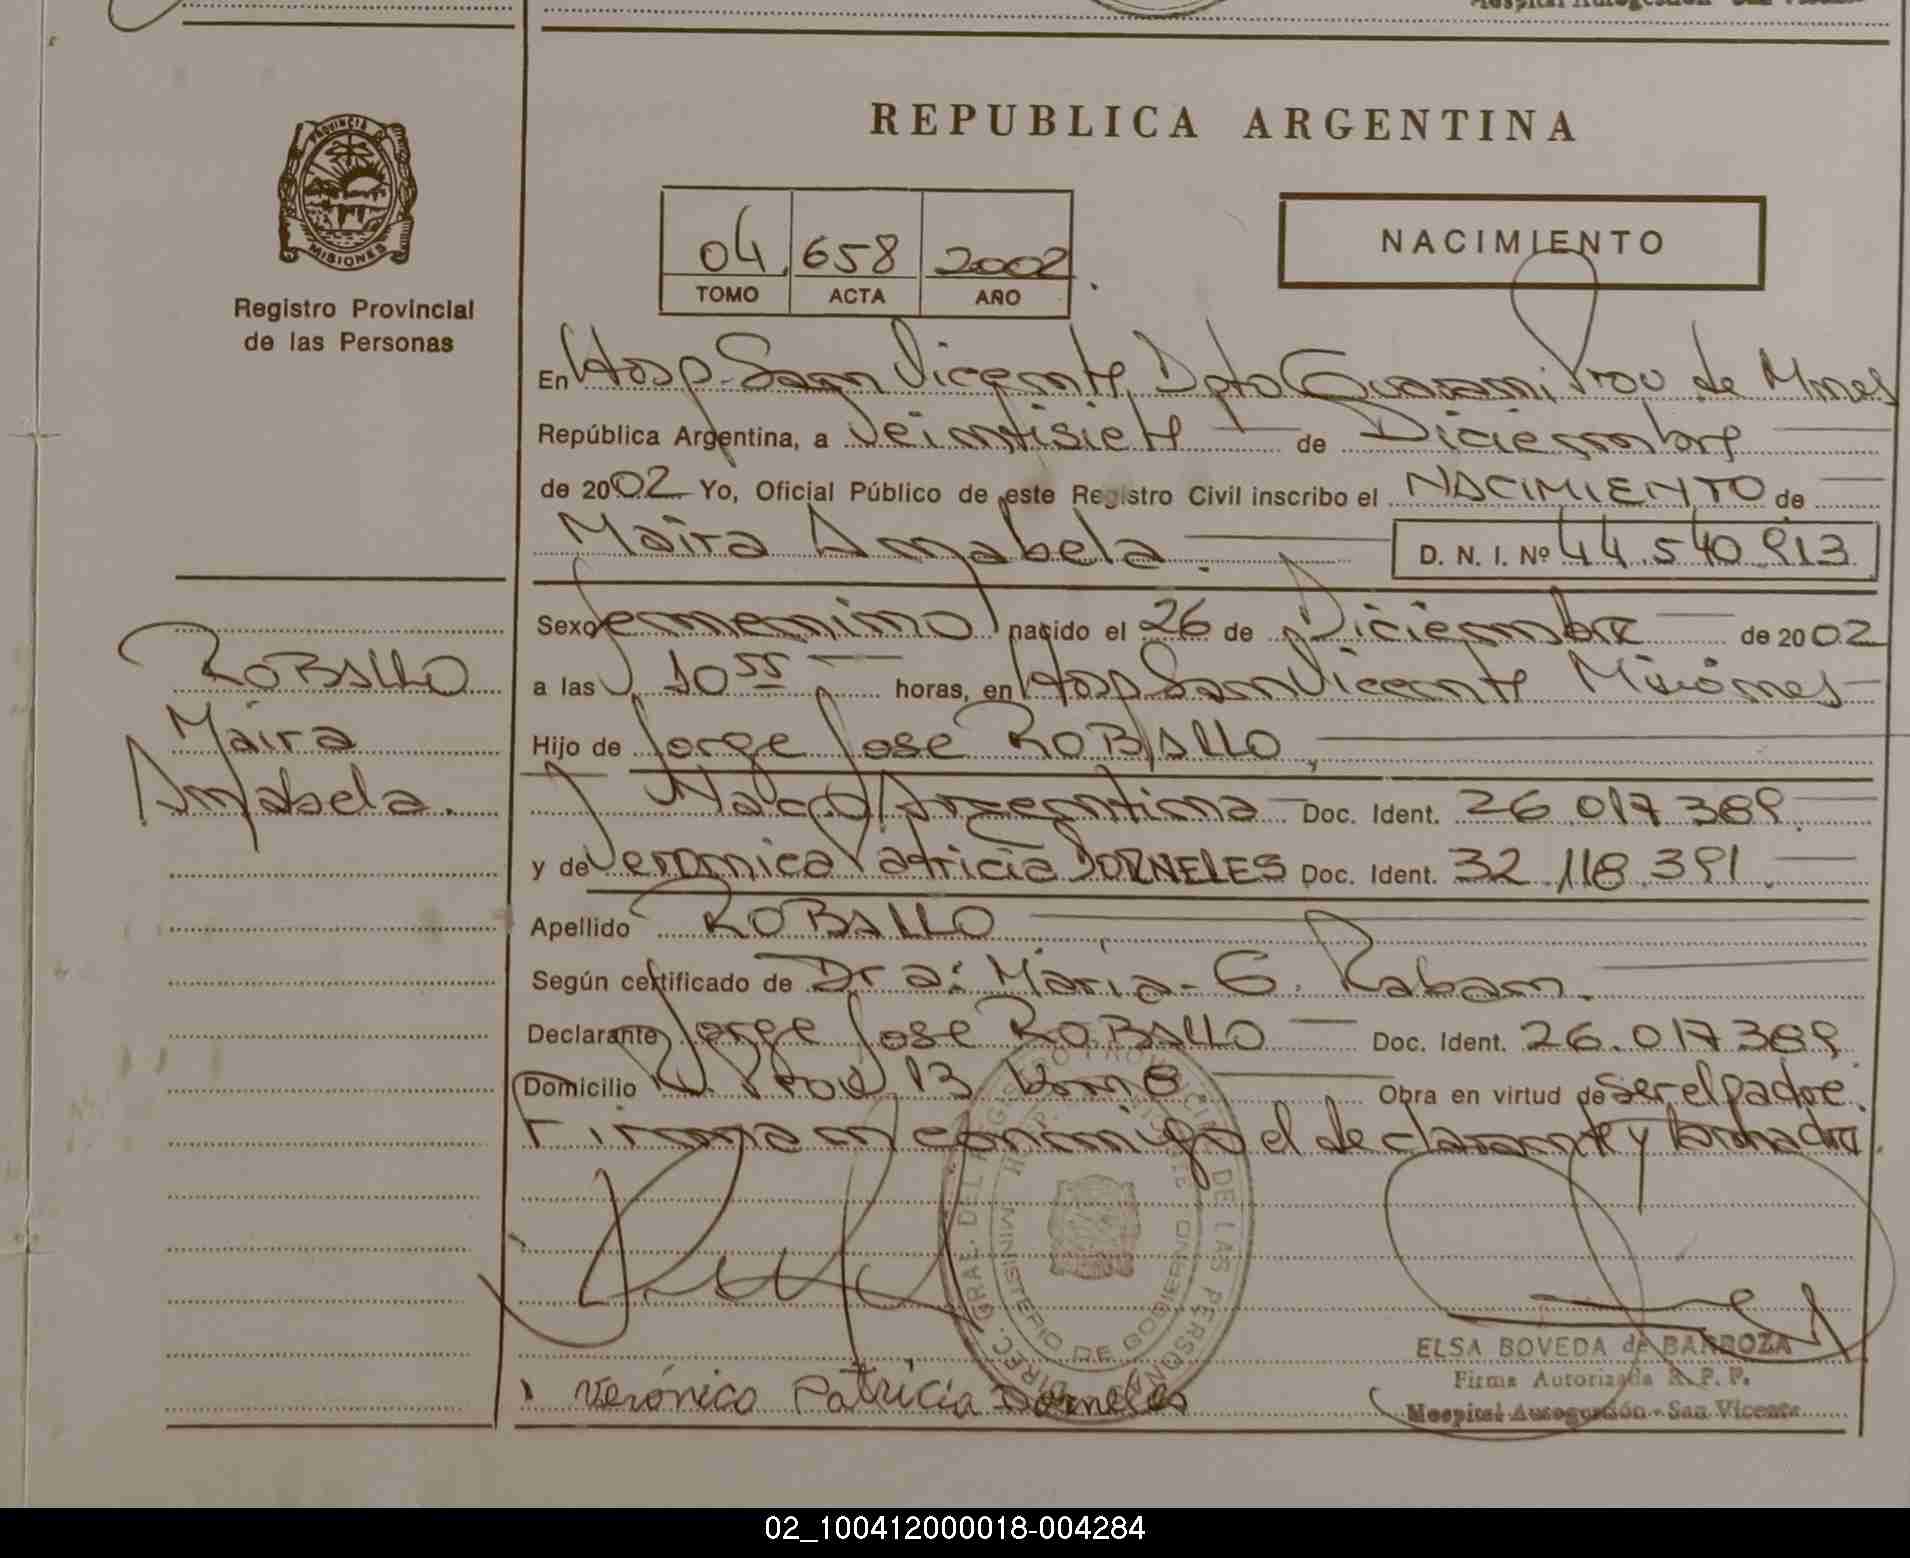 REPUBLICA ARGENTINA
PROVINCIA DE
MISIONES
Registro Provincial
de las Personas
04 658 2002
TOMO ACTA AÑO
NACIMIENTO
En Hosp. San Vicente, Dpto Guarani Prov de Mnes
República Argentina, a Veintisiete de Diciembre
de 2002 Yo, Oficial Público de este Registro Civil inscribo el NACIMIENTO de
Maira Anabela. D. N. I. Nº 44.540.913
Sexo femenino nacido el 26 de Diciembre de 2002
a las 10 55 horas, en Hosp San Vicente Misiones
Hijo de Jorge Jose ROBALLO,
Nac. Argentina Doc. Ident. 26.017.389.
y de Veronica Patricia DORNELES Doc. Ident. 32.118.391.
Apellido ROBALLO
Según certificado de Dra: Maria G. Raban.
Declarante Jorge Jose ROBALLO Doc. Ident. 26.017.389
Domicilio R. Prov 13 Obra en virtud de ser el padre.
Firman conmigo el declarante y la madre.
ROBALLO
Maira
Anabela.
DIREC. GRAL. DEL REGISTRO PROVINCIAL DE LAS PERSONAS
MINISTERIO DE GOBIERNO
Verónica Patricia Dorneles
ELSA BOVEDA de BARROZA
Firma Autorizada R. P. P.
Hospital Autogestión - San Vicente
02_100412000018-004284